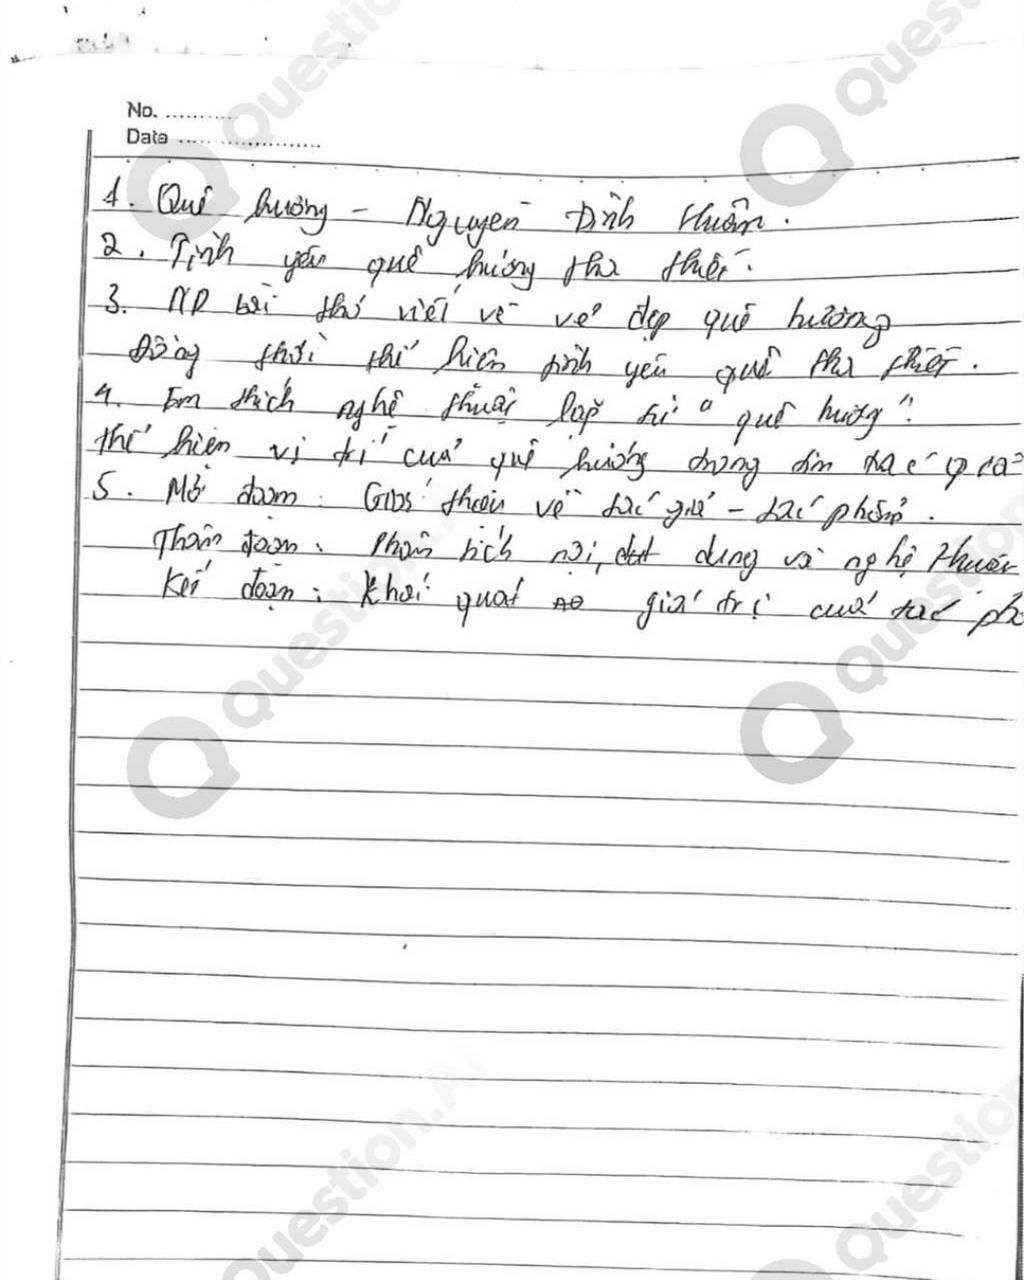 No. ..........
Date ....................
1. Quê hương - Nguyễn Đình Huân.
2. Tình yêu quê hương tha thiết.
3. ND bài thơ viết về vẻ đẹp quê hương
đồng thời thể hiện tình yêu quê tha thiết.
4. Em thích nghệ thuật lặp từ "quê hương".
thể hiện vị trí của quê hương trong tim tác giả
5. Mở đoạn: Giới thiệu về tác giả - tác phẩm.
Thân đoạn: Phân tích nội dung và nghệ thuật
Kết đoạn: Khái quát giá trị của tác ph
Question.AI